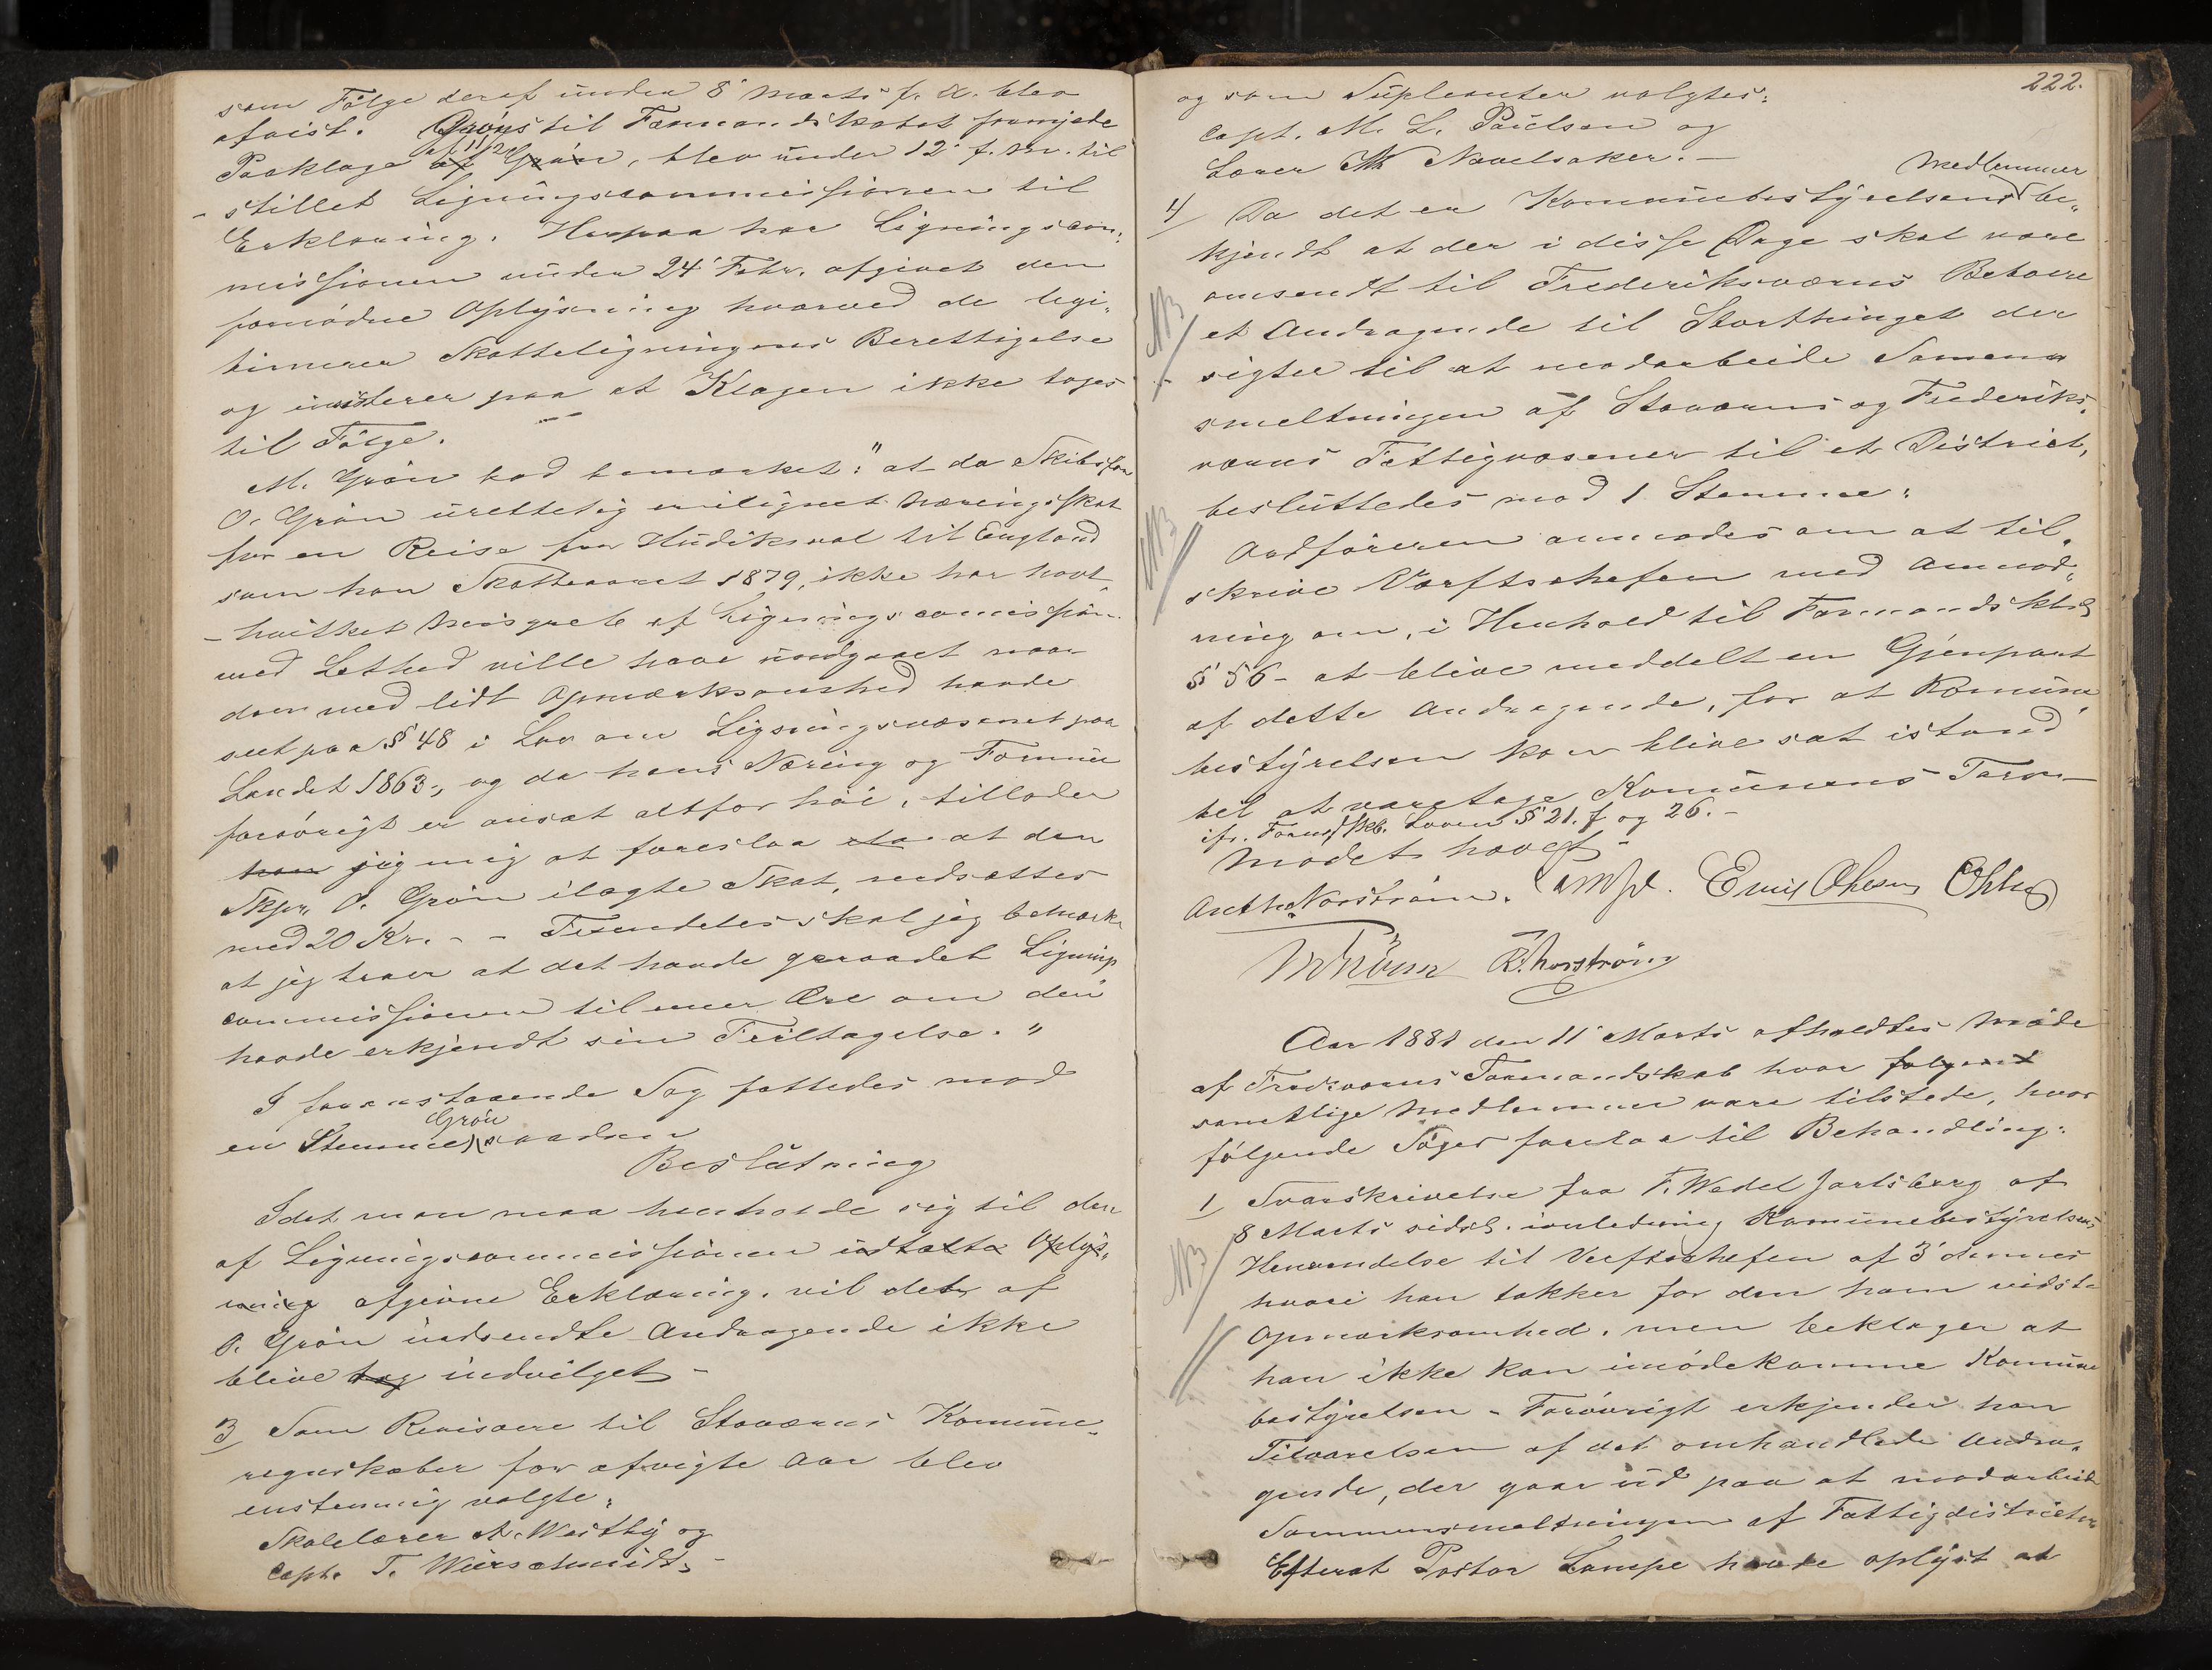 som Følge deraf under 8' Marts f. A. blev
afvist. Grøns til Formandskabet fremførte
Paaklage af 11/2 af Grøn, blev under 12' f. M. til
- stillet Ligningscommissionen til
Erklæring. Herpaa har Ligningscom-
missionen under 24' Febr. afgivet den
fornødne Oplysning hvorved de legi-
timerer Skatteligningens Berettigelse
og insisterer paa at Klagen ikke tages
til Følge.
M. Grøn bad bemærket: "at da Skibsfører
O. Grøn urettetig er ilignet Næringsskat
for en Reise fra Hudiksval til England
som han Skatteaaret 1879, ikke har havt
- hvilket Misgreb af Ligningscommission
med Lethed ville have undgaaet naar
den med lidt Opmærksomhed havde
seet paa § 48 i Lov om Ligningsvæsenet paa
Landet 1863, og da hans Næring og Formue
forøvrigt er ansat altfor høi, tillader
han jeg mig at foreslaa at den
Skpr. O. Grøn ilagte Skat, nedsættes
med 20 Kr. - - Fremdeles skal jeg bemærke
at jeg troer at det havde geraadet Lignings
commissionen til mer Ære om den
havde erkjendt sin Feiltagelse."
I foranstaaende Sag fattedes mod
en Stemme (Grøn) saadan
Beslutning
Idet man maa henholde sig til den
af Ligningscommissionen udtalte Oplys-
ning afgivne Erklæring, vil det af
O. Grøn indsendte Andragende ikke
blive tag indvilget -
3 Som Revisorer til Staværns Komune-
regnskaber for afvigte Aar blev
enstemmig valgte:
Skolelærer A. Westby og
Capt. T. Wierschmidt -
222.
og som Supleanter valgtes:
Capt. M. L. Paulsen og
Lærer Navelsaker. -
4 Da det er Komunebestyrelsens Medlemmer be-
kjendt at der i disse Dage skal være
omsendt til Frederiksværns Beboere
NB et Andragende til Storthinget der
sigter til at modarbeide Sammen
smeltningen af Staværns og Frederiks-
værns Fattigvæsener til et District,
besluttedes mod 1 Stemme:
NB Ordføreren anmodes om at til-
skrive Værftschefen med Anmod-
ning om, i Henhold til Formandskbl
§ 56 - at blive meddelt en Gjenpart
af dette Andragende, for at Komune
bestyrelsen kan blive sat istand
til at varetage Komunens Tarv -
jfr. Formdskb. Loven § 21. f og 26. -
Mødet hævet -
Anth. Norstrøm. Lampe. Emil Olsen
R. Norstrøm
Aar 1881 den 11' Marts afholdtes Møde
af Fredsværns Formandskab hvor følgend
samtlige Medlemmer vare tilstede, hvor
følgende Sager foretoges til Behandling:
1 Svarskrivelse fra F. Wedel Jarlsberg af
8 Marts sidstl. i anledning Komunebestyrelsens
NB Henvendelse til Verftschefen af 3' dennes
hvori han takker for den ham vidste
Opmærksomhed, men beklager at
han ikke kan imødekomme Komune
bestyrelsen - Forøvrigt erkjender han
Tilværelsen af det omhandlede Andra-
gende, der gaar ud paa at modarbeide
Sammensmeltningen af Fattigdistricterne
Efterat Pastor Lampe havde oplyst at